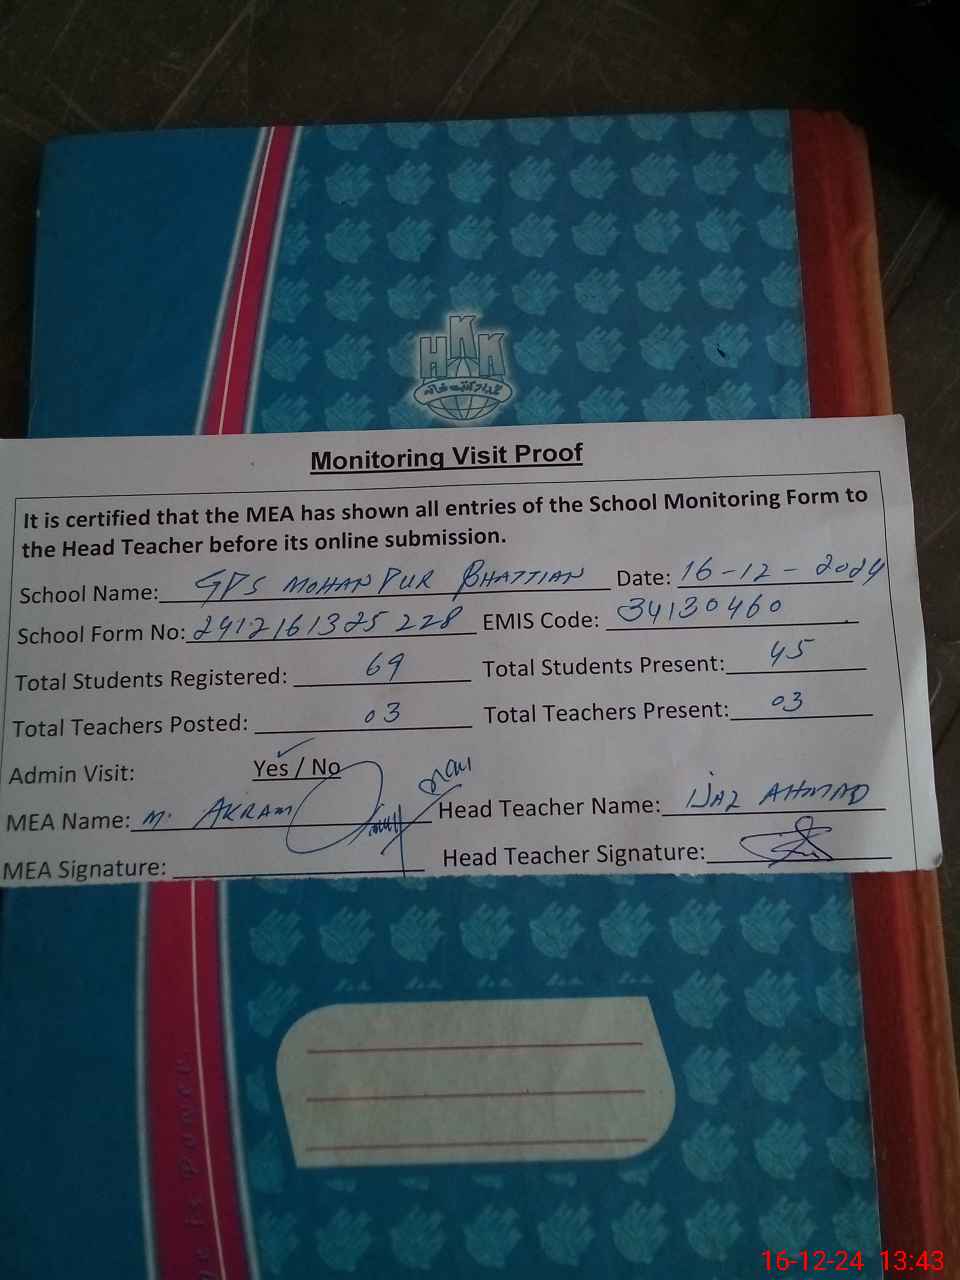 HKK
Monitoring Visit Proof
It is certified that the MEA has shown all entries of the School Monitoring Form to
the Head Teacher before its online submission.
School Name: GPS MOHAN PUR BHATTIAN Date: 16-12-2024
School Form No: 2412161325228 EMIS Code: 34130460
Total Students Registered: 69 Total Students Present: 45
Total Teachers Posted: 03 Total Teachers Present: 03
Admin Visit: Yes / No
MEA Name: M. AKRAM Head Teacher Name: IJAZ AHMAD
MEA Signature: Head Teacher Signature:
16-12-24 13:43